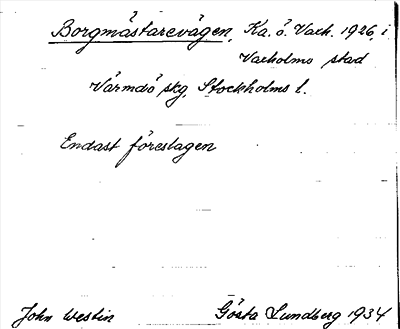 Borgmästarevägen, Ka. ö. Vaxh. 1926, i
Vaxholms stad
Värmdö skg, Stockholms l.
Endast föreslagen
John Westin Gösta Lundberg 1934